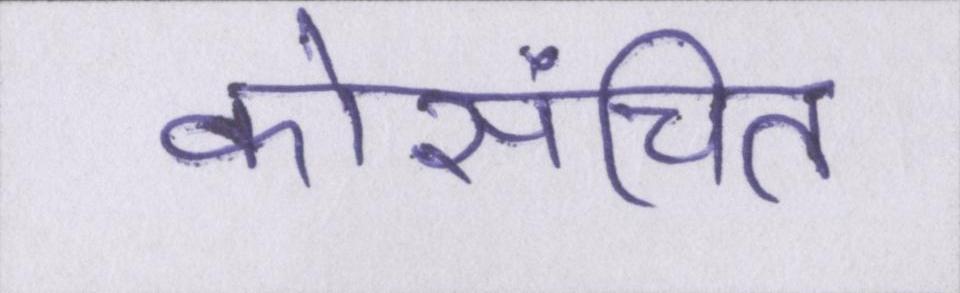 कोसंचित